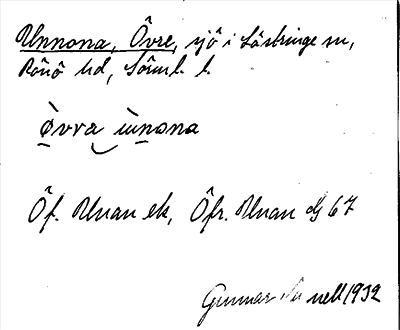 Unnona, Övre, sjö i Lästringe sn,
Rönö hd, Sörml. l.
Øvra ùnona
Öf. Unan ek, Öfr. Unan dg 67
Gunnar 1932